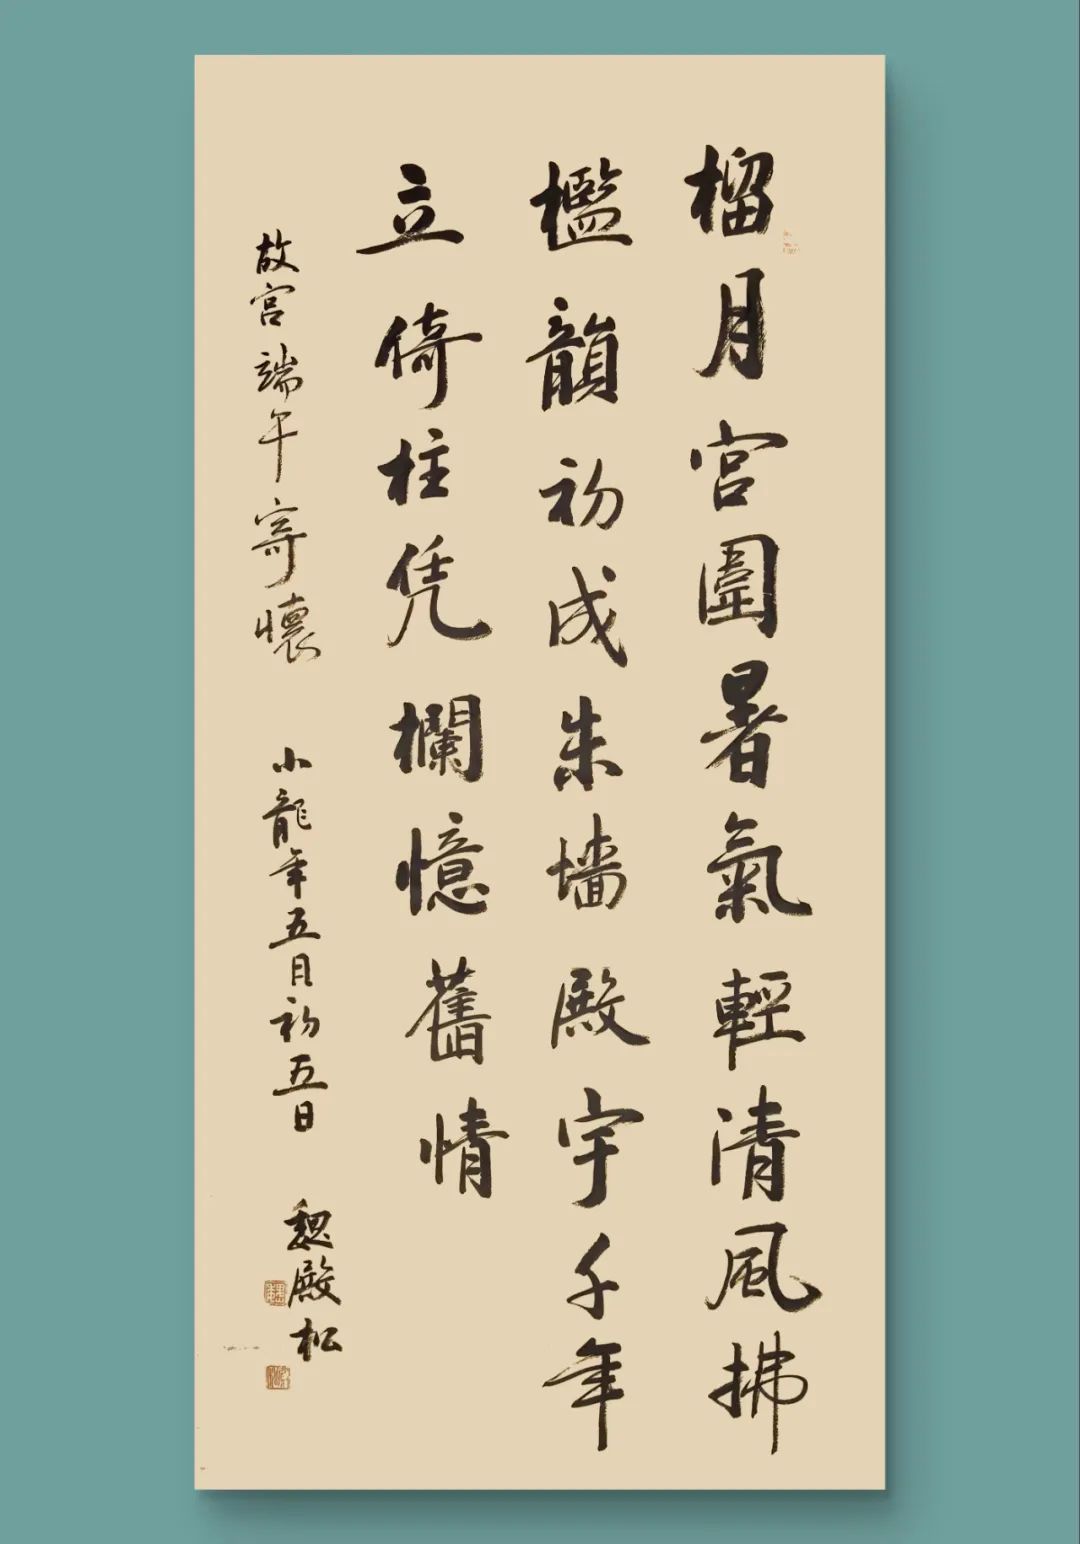 榴月宮圍暑氣輕清風拂
檻韻初成朱墻殿宇千年
立倚柱凭欄憶舊情
故宮端午寄懷 小龍年五月初五日 魏殿松